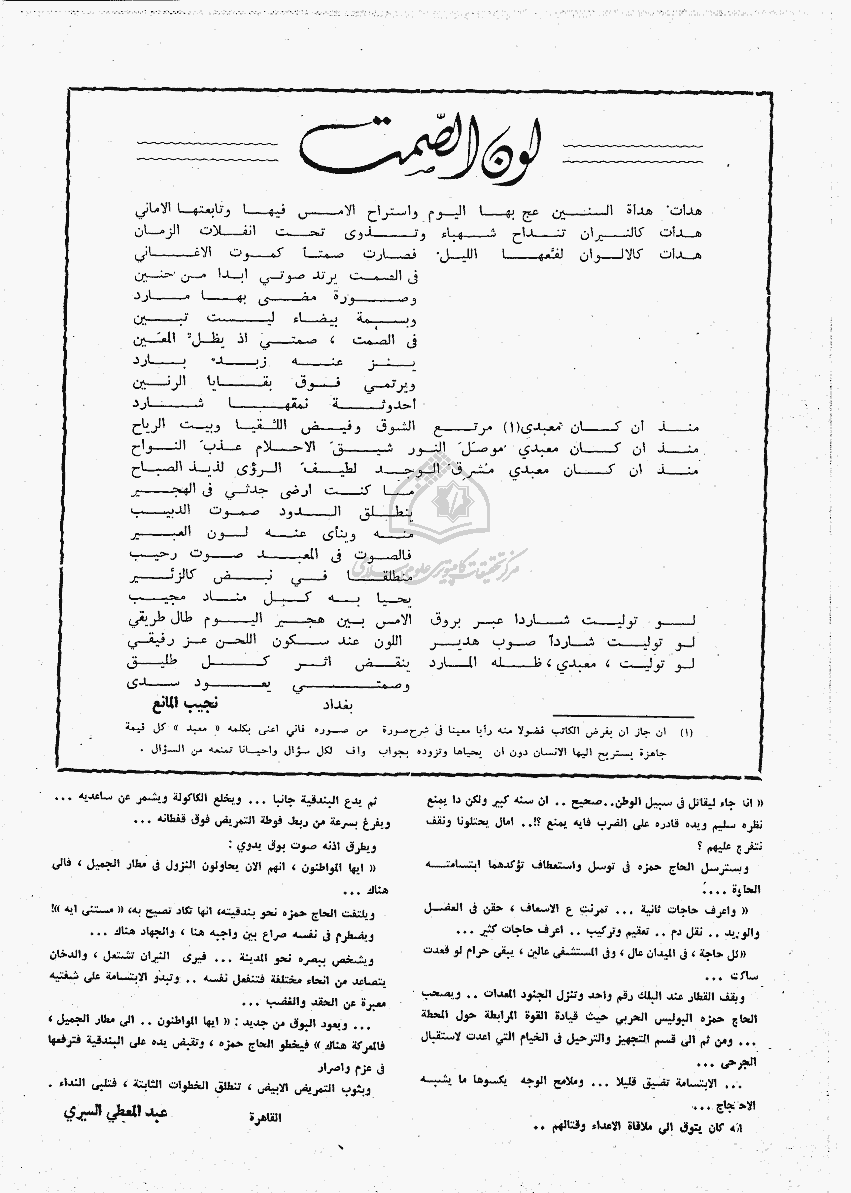 لون الصمت
هدأت هدأة الســنــين عج بهــا اليــوم واستراح الامــس فيهــا وتابعتهــا الاماني
هــدأت كالنــيران تنــداح شــهباء وتــذوى تحــت انفــلات الزمــان
هــدأت كالالــوان لفّعهــا الليل فصــارت صمتــا كمــوت الاغــاني
فى الصمــت يرتد صوتــي ابدا مــن حنــين
وصــورة مضــى بهــا مــارد
وبســمة بيضاء ليــست تبــين
فى الصمت ، صمتــي اذ يظــل المعــين
ينــز عنــه زبــد بــارد
ويرتمــي فــوق بقــايا الرنــين
أحدوثــة نمقهــا شــارد
منــذ ان كــان معبدي(١) مرتــع الشوق وفيــض اللقيــا وبيت الرياح
منــذ ان كــان معبدي موصل النور شيــق الاحــلام عــذب النــواح
منــذ ان كــان معبدي مشرق الوجــد لطيــف الرؤى لذيــذ الصباح
مــا كنــت ارضى جدثــي فى الهجــير
ينطــلق الــدود صمــوت الدبيــب
منــه وينأى عنــه لــون العبــير
فالصــوت فى المعبــد صــوت رحيــب
منطلقــا فــي نبــض كالزئــير
يحيــا بــه كــل منــاد مجيــب
لــو توليــت شــاردا عبــر بروق الامس بــين هجــير اليــوم طال طريقي
لــو توليــت شــاردا صــوب هديــر اللون عند ســكون اللحن عــز رفيقــي
لــو توليــت ، معبدي ، ظــله المــارد ينقــض اثــر كــل طليــق
وصمتــي يعــود ســدى
بغداد نجيب المانع
(١) ان جاز ان يفرض الكاتب فضولا منه رأيا معينا فى شرح صورة من صــوره فاني اعنى بكلمه « معبد » كل قيمة
جاهزة يستريح اليها الانسان دون ان يحياها وتزوده بجواب واف لكل سؤال واحيــانا تمنعه من السؤال .
« انا جاء ليقاتل فى سبيل الوطن..صحيح .. ان سنه كبير ولكن دا يمنع
نظره سليم ويده قادره على الضرب فايه يمنع ؟!.. امال يحتلونا ونقف
نتفرج عليهم ؟
ويسترسل الحاج حمزه فى توسل واستعطاف تؤكدهما ابتسامتــه
الحلوة ....
« واعرف حاجات ثانية ... تمرنت ع الاسعاف ، حقن فى العضــل
والوريد .. نقل دم .. تعقيم وتركيب .. اعرف حاجات كثير ...
«كل حاجة ، فى الميدان عال ، وفى المستشفى عالين ، يبقى حرام لو قعدت
ساكت ...
ويقف القطار عند البلك رقم واحد وتنزل الجنود المعدات .. ويصحب
الحاج حمزه البوليس الحربي حيث قيادة القوة المرابطة حول المحطة
... ومن ثم الى قسم التجهيز والترحيل فى الخيام التي اعدت لاستقبال
الجرحى ...
... الابتسامة تضيق قليلا ... وملامح الوجه يكسوها ما يشبــه
الاحتجاج ...
انه كان يتوق الى ملاقاة الاعداء وقتالهم ..
ثم يدع البندقية جانبا ... ويخلع الكاكولة ويشمر عن ساعديه ...
ويفرغ بسرعة من ربط فوطة التمريض فوق قفطانه ...
ويطرق اذنه صوت بوق يدوي :
« ايها المواطنون ، انهم الان يحاولون النزول فى مطار الجميل ، فالى
هناك ...
ويلتفت الحاج حمزه نحو بندقيته، انها تكاد تصيح به، « مستنى ايه »!
ويضطرم فى نفسه صراع بين واجبه هنا ، والجهاد هناك ...
ويشخص ببصره نحو المدينة ... فيرى النيران تشتعل ، والدخان
يتصاعد من انحاء مختلفة فتنفعل نفسه .. وتبدو الابتسامة على شفتيه
معبرة عن الحقد والغضب ...
... ويعود البوق من جديد : « ايها المواطنون .. الى مطار الجميل ،
فالمعركة هناك » فيخطو الحاج حمزه ، وتقبض يده على البندقية فترفعها
فى عزم واصرار
وبثوب التمريض الابيض ، تنطلق الخطوات الثابتة ، فتلبى النداء .
القاهرة عبد المعطي السيري
مركز تحقيقات كامپيوترى علوم اسلامى